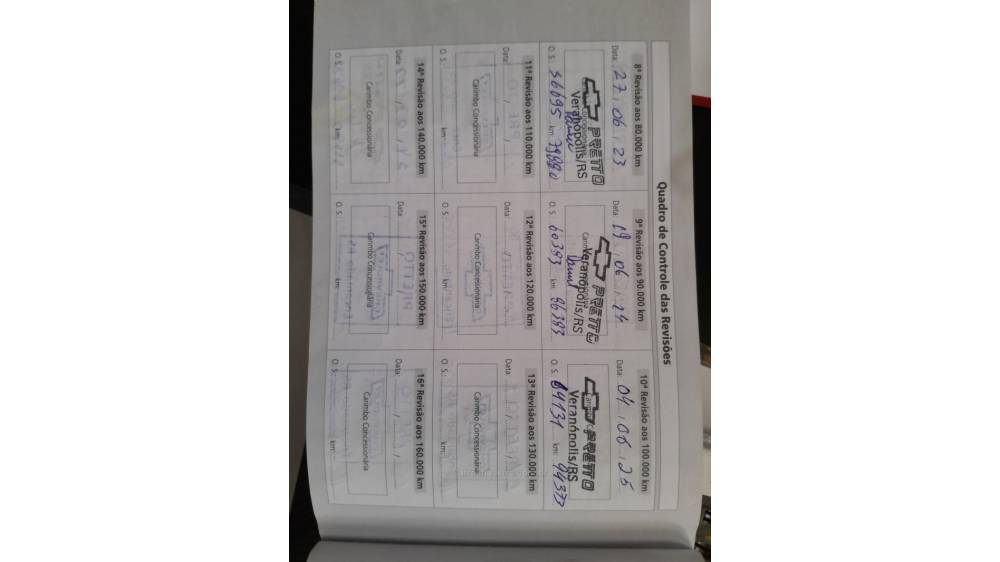 Quadro de Controle das Revisões
8ª Revisão aos 80.000 km
Data: 27 / 06 / 23
PRETTO
Veranópolis/RS
O.S.: 56695 km:
9ª Revisão aos 90.000 km
Data: 19 / 06 / 24
PRETTO
Veranópolis/RS
O.S.: 60393 km: 86383
10ª Revisão aos 100.000 km
Data: 04 / 06 / 25
PRETTO
Veranópolis/RS
O.S.: 64131 km: 94373
11ª Revisão aos 110.000 km
Data: / /
Carimbo Concessionária
O.S.: km:
12ª Revisão aos 120.000 km
Data:
Carimbo Concessionária
O.S.: km:
13ª Revisão aos 130.000 km
Data: /
Carimbo Concessionária
O.S.: km:
14ª Revisão aos 140.000 km
Data:
Carimbo Concessionária
O.S.: km:
15ª Revisão aos 150.000 km
Data:
Carimbo Concessionária
O.S.: km:
16ª Revisão aos 160.000 km
Data: / /
Carimbo Concessionária
O.S.: km: